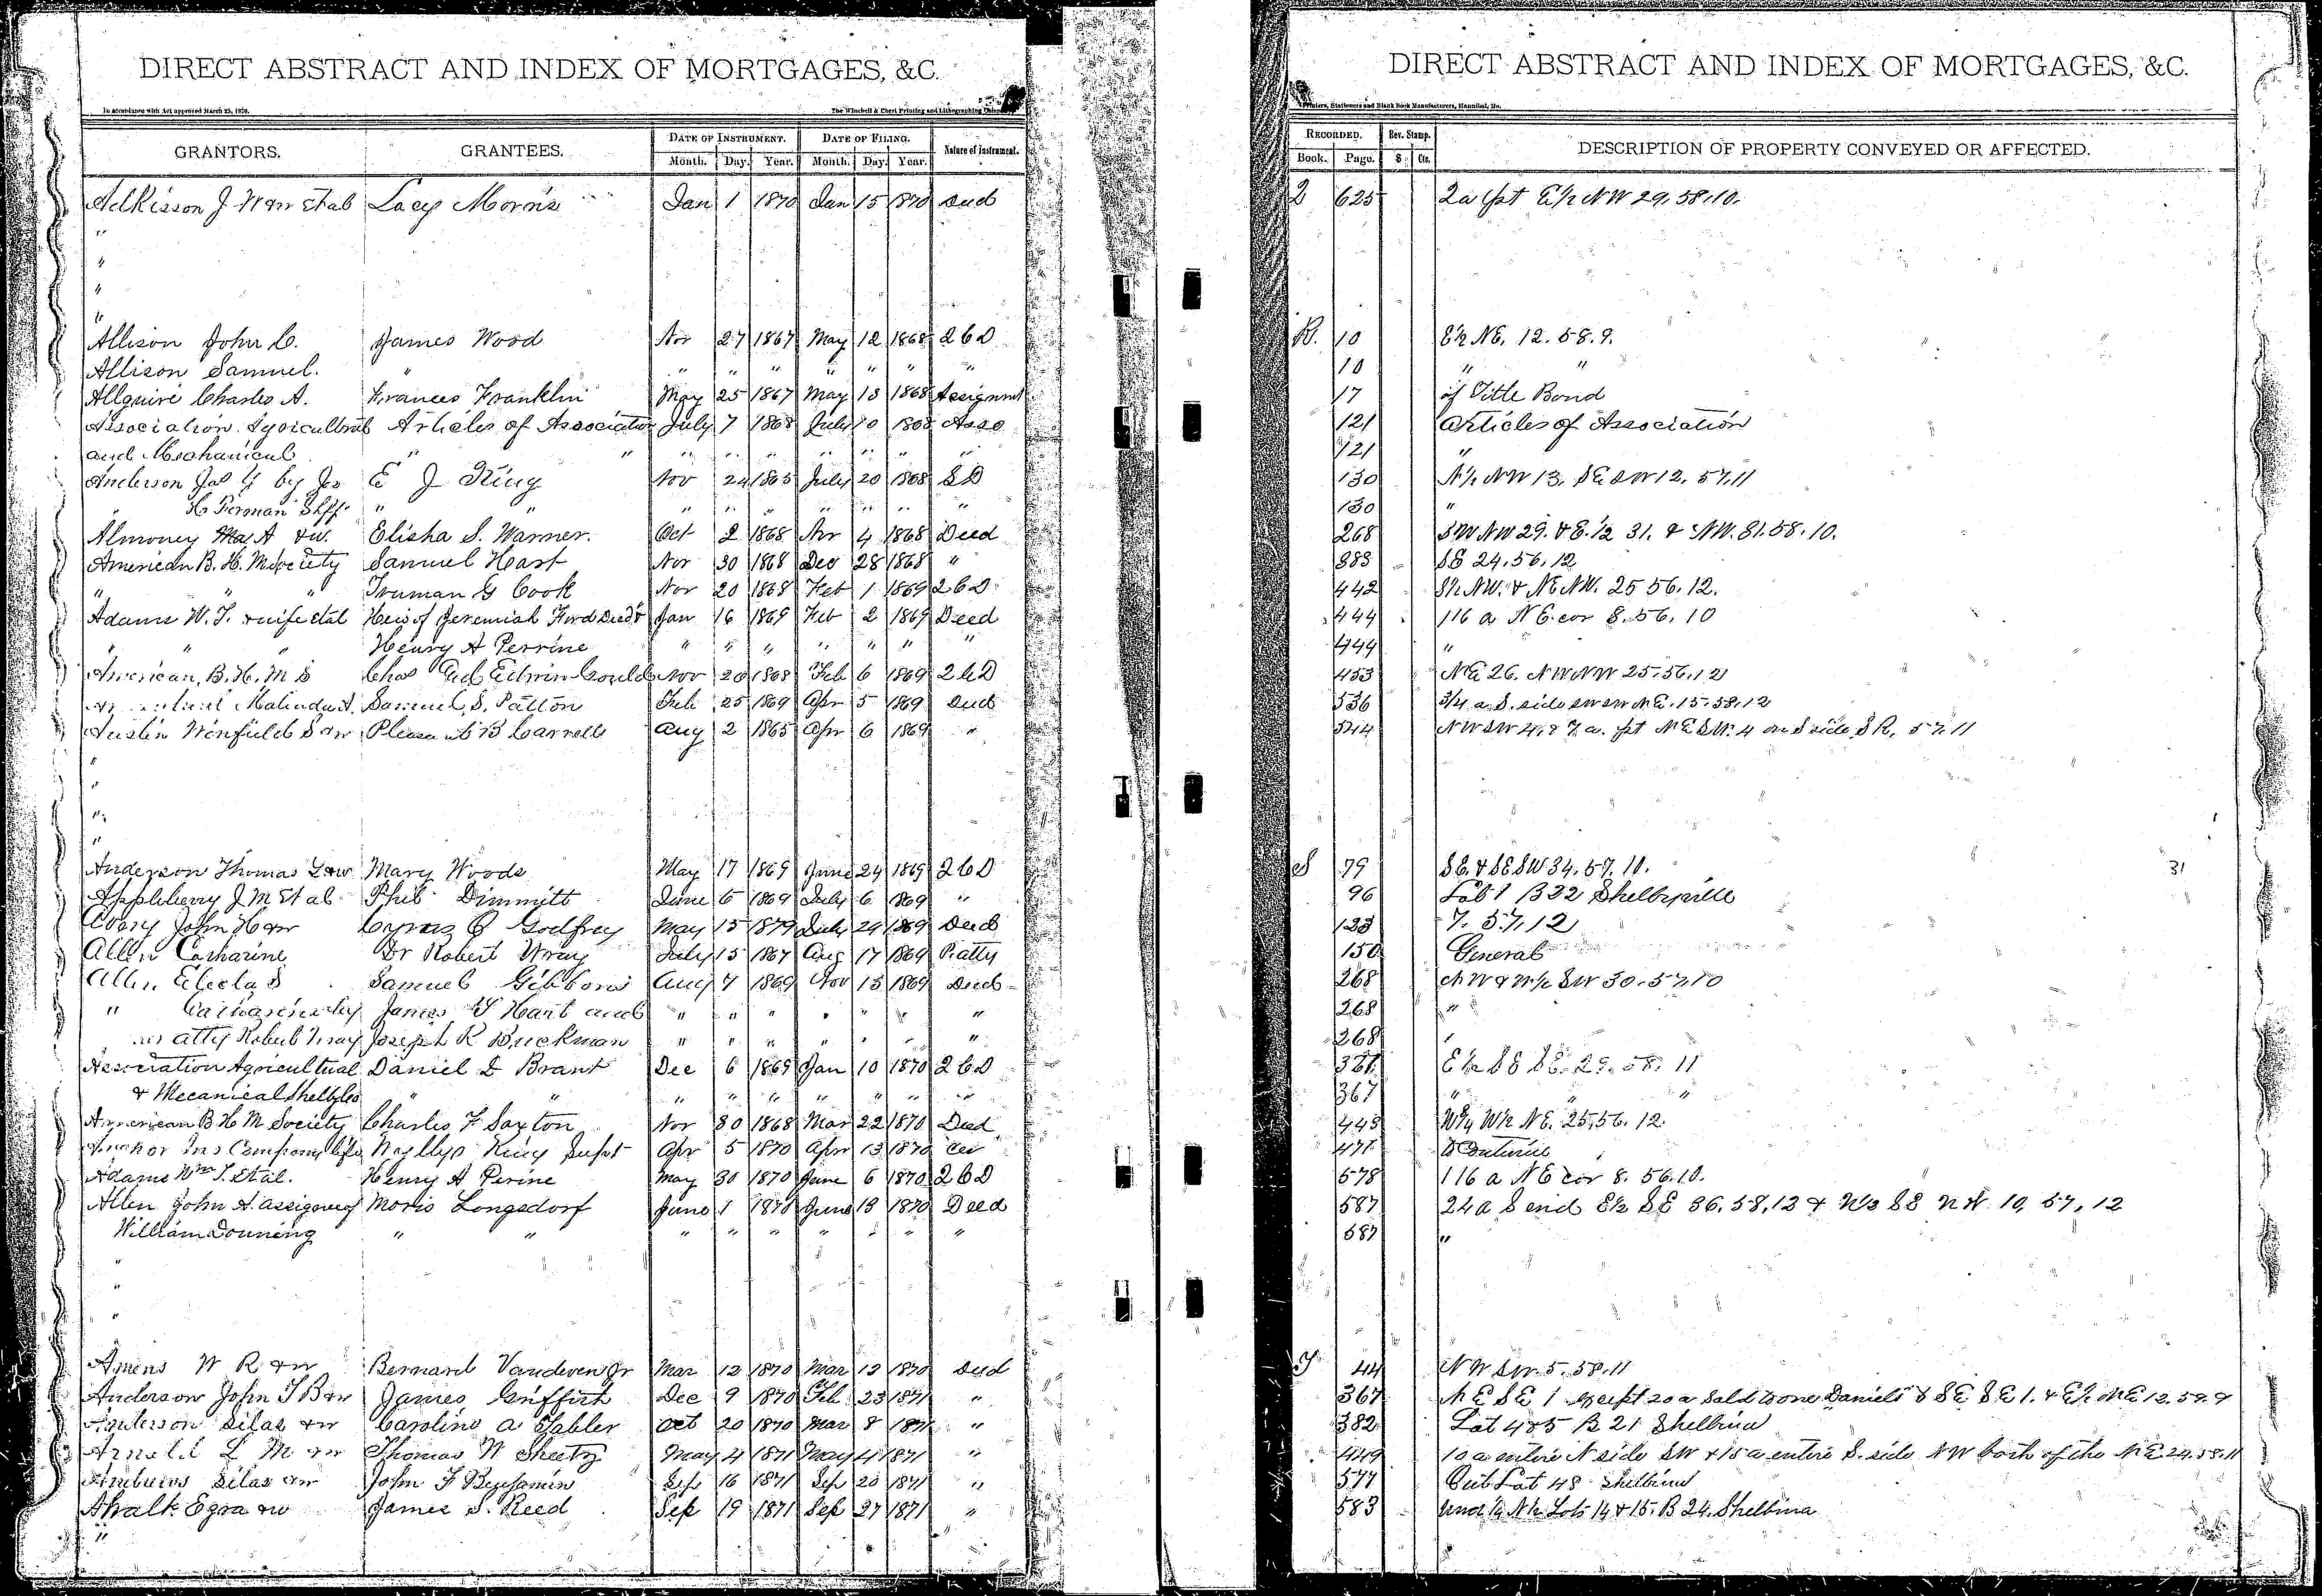 DIRECT ABSTRACT AND INDEX OF MORTGAGES, &C.
In accordance with Act approved March 25, 1870.
The Winchell & Ebert Printing and Lithographing
GRANTORS. GRANTEES. DATE OF INSTRUMENT. DATE OF FILING. Nature of Instrument.
Month. Day. Year. Month. Day. Year.
Adkisson J Lacy Morris Jan 1 1870 Jan 15 1870 Deed
"
"
"
"
Allison John C. James Wood Nov 27 1867 May 12 1868 2 C D
Allison Samuel. " " " " " " " "
Allguire Charles A. Frances Franklin May 25 1867 May 13 1868 Assignmt
Association Agricultral Articles of Association July 7 1868 July 10 1868 Asso
and Mechanical " " " " " " " "
Anderson Jas by E J King Nov 24 1865 July 20 1868 S D
" Shff " " " " " " " " "
Almoney A & w. Elisha S. Warner. Oct 2 1868 Nov 4 1868 Deed
American B. H. M Society Samuel Hast Nov 30 1868 Dec 28 1868 "
" " Truman G Cook Nov 20 1868 Feb 1 1869 2 C D
Adams W. T. & wife etal Heis of Jeremiah Ford Deed & Jan 16 1869 Feb 2 1869 Deed
" " Henry A Perrine " " " " " " "
American, B. H. M S Chas Edwin Gould Nov 20 1868 Feb 6 1869 2 C D
Malinda A. Samuel S. Patton Feb 25 1869 Apr 5 1869 Deed
Austin Winfield S & w Pleasant B Carrell Aug 2 1865 Apr 6 1869 "
"
"
"
"
Anderson Thomas L & w Mary Woods May 17 1869 June 24 1869 2 C D
Appleberry J M et al Phil Dimmitt June 5 1869 July 6 1869 "
Avory John H & w Cyrus Godfrey May 15 1879 July 24 1869 Deed
Allen Catharine Dr Robert Wray July 15 1867 Aug 17 1869 P. atty
Allen Electa S Samuel Gibbons Aug 7 1869 Nov 13 1869 Deed
" Catharine by James Hart and " " " " " " "
her atty Robert Wray Joseph R Buckman " " " " " " "
Association Agricultural Daniel D Brant Dec 6 1869 Jan 10 1870 2 C D
& Mecanical Shelby Co " " " " " " " " "
American B H M Society Charles F Saxton Nov 30 1868 Mar 22 1870 Deed
Anchor Ins Company life Wyllys King Supt Apr 5 1870 Apr 13 1870 Cer
Adams Wm T. et al. Henry A Perine May 30 1870 June 6 1870 2 C D
Allen John A. assignee of Moris Longsdorf June 1 1870 June 13 1870 Deed
William Downing " " " " " " " " "
"
"
"
Amens W R & w Bernard Vandeven Jr Mar 12 1870 Mar 12 1870 Deed
Anderson John T B & w James Griffith Dec 9 1870 Feb 23 1871 "
Anderson Silas & w Caroline A Tabler Oct 20 1870 Mar 8 1871 "
Arnold L M & w Thomas W Sheetz May 4 1871 May 4 1871 "
Silas & w John F Benjamin Sep 16 1871 Sep 20 1871 "
Ezra & w James S. Reed Sep 19 1871 Sep 27 1871 "
"
DIRECT ABSTRACT AND INDEX OF MORTGAGES, &C.
Printers, Stationers and Blank Book Manufacturers, Hannibal, Mo.
RECORDED. Rev. Stamp. DESCRIPTION OF PROPERTY CONVEYED OR AFFECTED.
Book. Page. $ Cts.
Q 625 2a pt E½ NW 29. 58. 10.
R. 10 E½ NE. 12. 58. 9.
10 " "
17 of Title Bond
121 Articles of Association
121 "
130 N½ NW 13. SE SW 12. 57. 11
130 "
268 SW NW 29. & E. ½ 31. & NW. 31. 58. 10.
383 SE 24. 56. 12
442 S½ NW. & NE NW. 25 56. 12.
444 116 a NE. cor 8. 56. 10
444 "
453 NE 26. NW NW 25. 56. 12
536 3/4 a S. side SW SW NE. 15. 58. 12
544 NW SW 4. & 7 a. pt NE SW. 4 on S side S R. 57. 11
S 79 SE. & SE SW 34. 57. 10. 31
96 Lot 1 B 22 Shelbyville
133 7. 57. 12
150 General
268 NW & N½ SW 30. 57. 10
268 "
268 "
367 E½ SE SE. 29. 58. 11
367 " "
443 W½ W½ NE. 25. 56. 12.
471
578 116 a NE cor 8. 56. 10.
587 24 a S end E½ SE 36. 58. 13 & W½ SE NW. 10, 57, 12
587 "
T 44 NW SW. 5. 58. 11
367 NE SE 1 except 20 a sold to one Daniels & SE SE 1. & E½ NE 12. 59. 9
382 Lot 4 & 5 B 21 Shelbina
449 10 a entire N side SW & 15 a entire S. side NW both of the NE 24. 58. 11
577 Out Lot 48 Shelbina
583 Und ½ N½ Lots 14 & 15. B 24. Shelbina